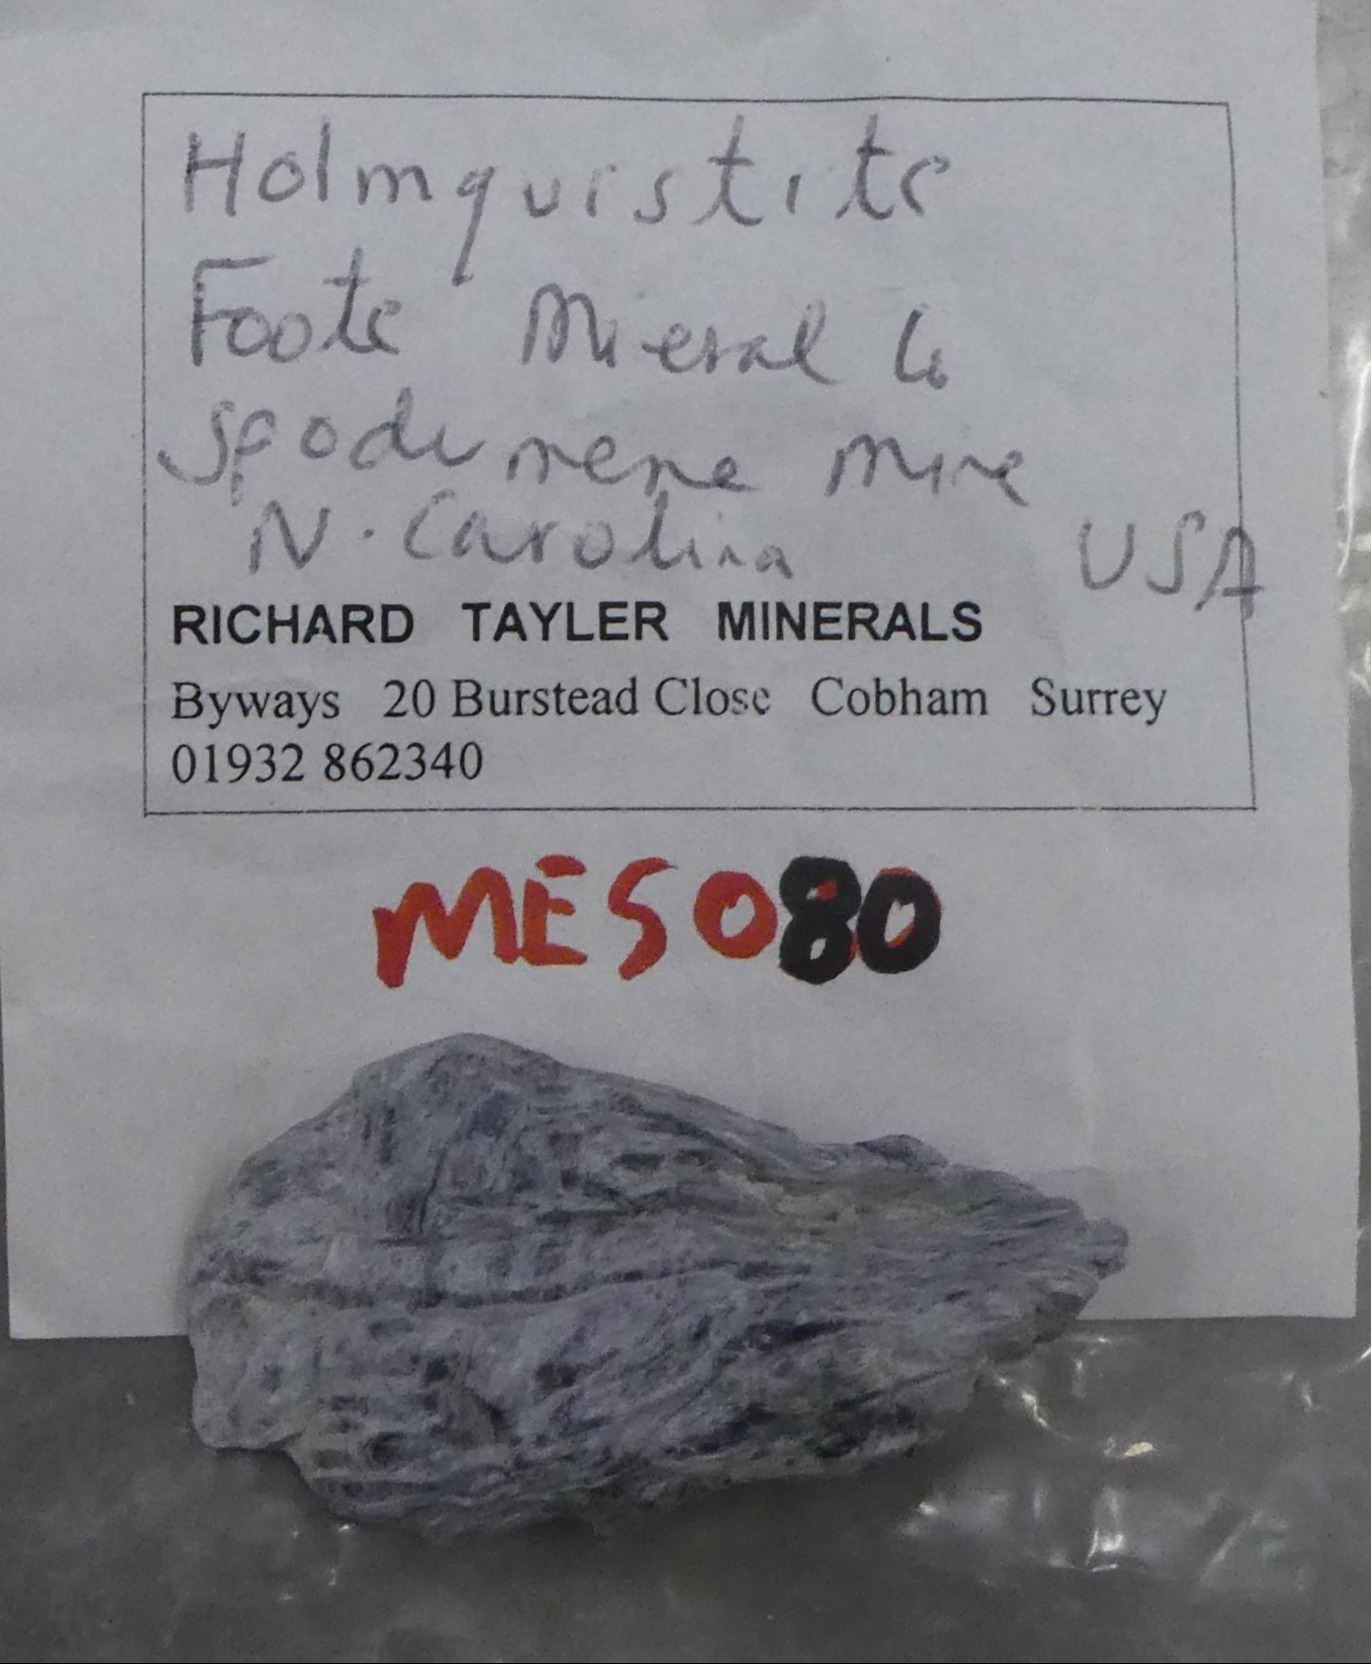 Holmquistite
Foote Mineral Co
Spodumene mine
N. Carolina USA
RICHARD TAYLER MINERALS
Byways 20 Burstead Close Cobham Surrey
01932 862340
MES080